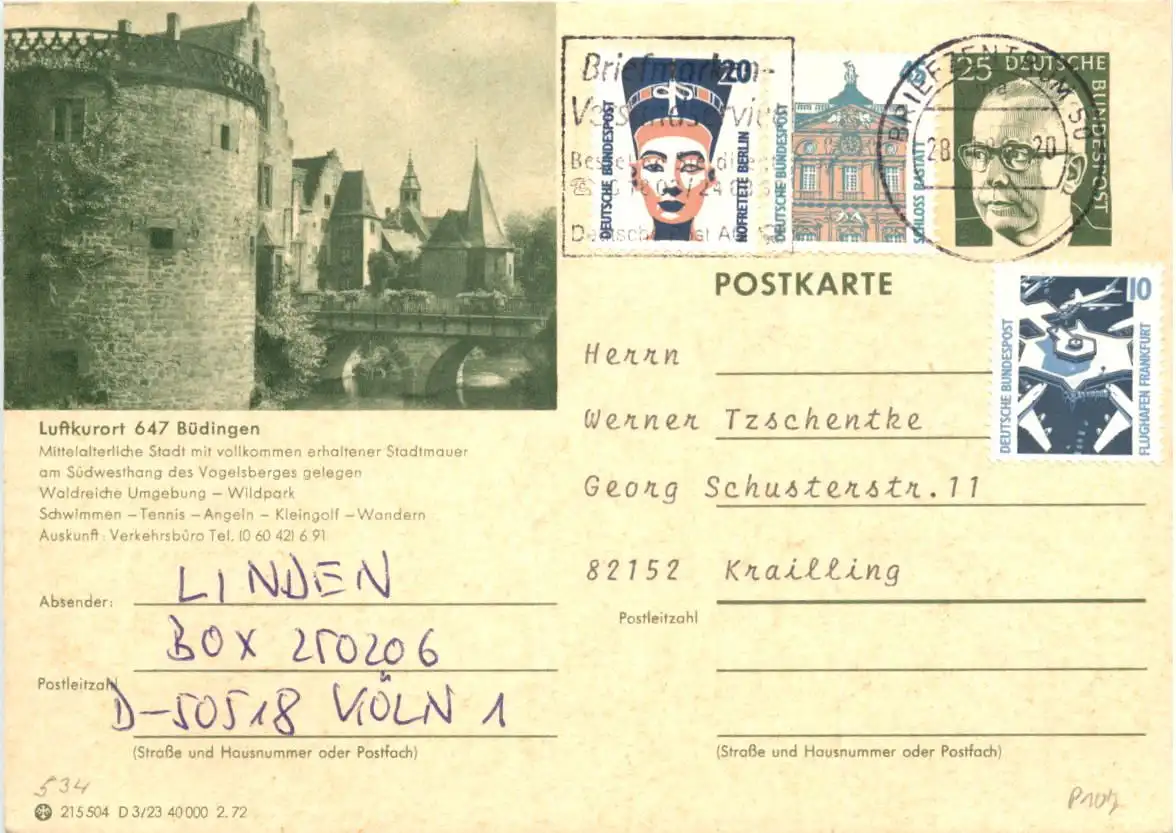 Luftkurort 647 Büdingen
Mittelalterliche Stadt mit vollkommen erhaltener Stadtmauer
am Südwesthang des Vogelsberges gelegen
Waldreiche Umgebung – Wildpark
Schwimmen – Tennis – Angeln – Kleingolf – Wandern
Auskunft: Verkehrsbüro Tel. (0 60 42) 6 91
Absender: LINDEN
BOX 250206
Postleitzahl D-50518 KÖLN 1
(Straße und Hausnummer oder Postfach)
534
215504 D 3/23 40000 2.72
Briefmarken-
Deutsche Post AG
20
DEUTSCHE BUNDESPOST
NOFRETETE BERLIN
DEUTSCHE BUNDESPOST
SCHLOSS RASTATT
BRIEFZENTRUM 50
28
20
25 DEUTSCHE BUNDESPOST
POSTKARTE
10
DEUTSCHE BUNDESPOST
FLUGHAFEN FRANKFURT
Herrn
Werner Tzschentke
Georg Schusterstr.11
82152 Krailling
Postleitzahl
(Straße und Hausnummer oder Postfach)